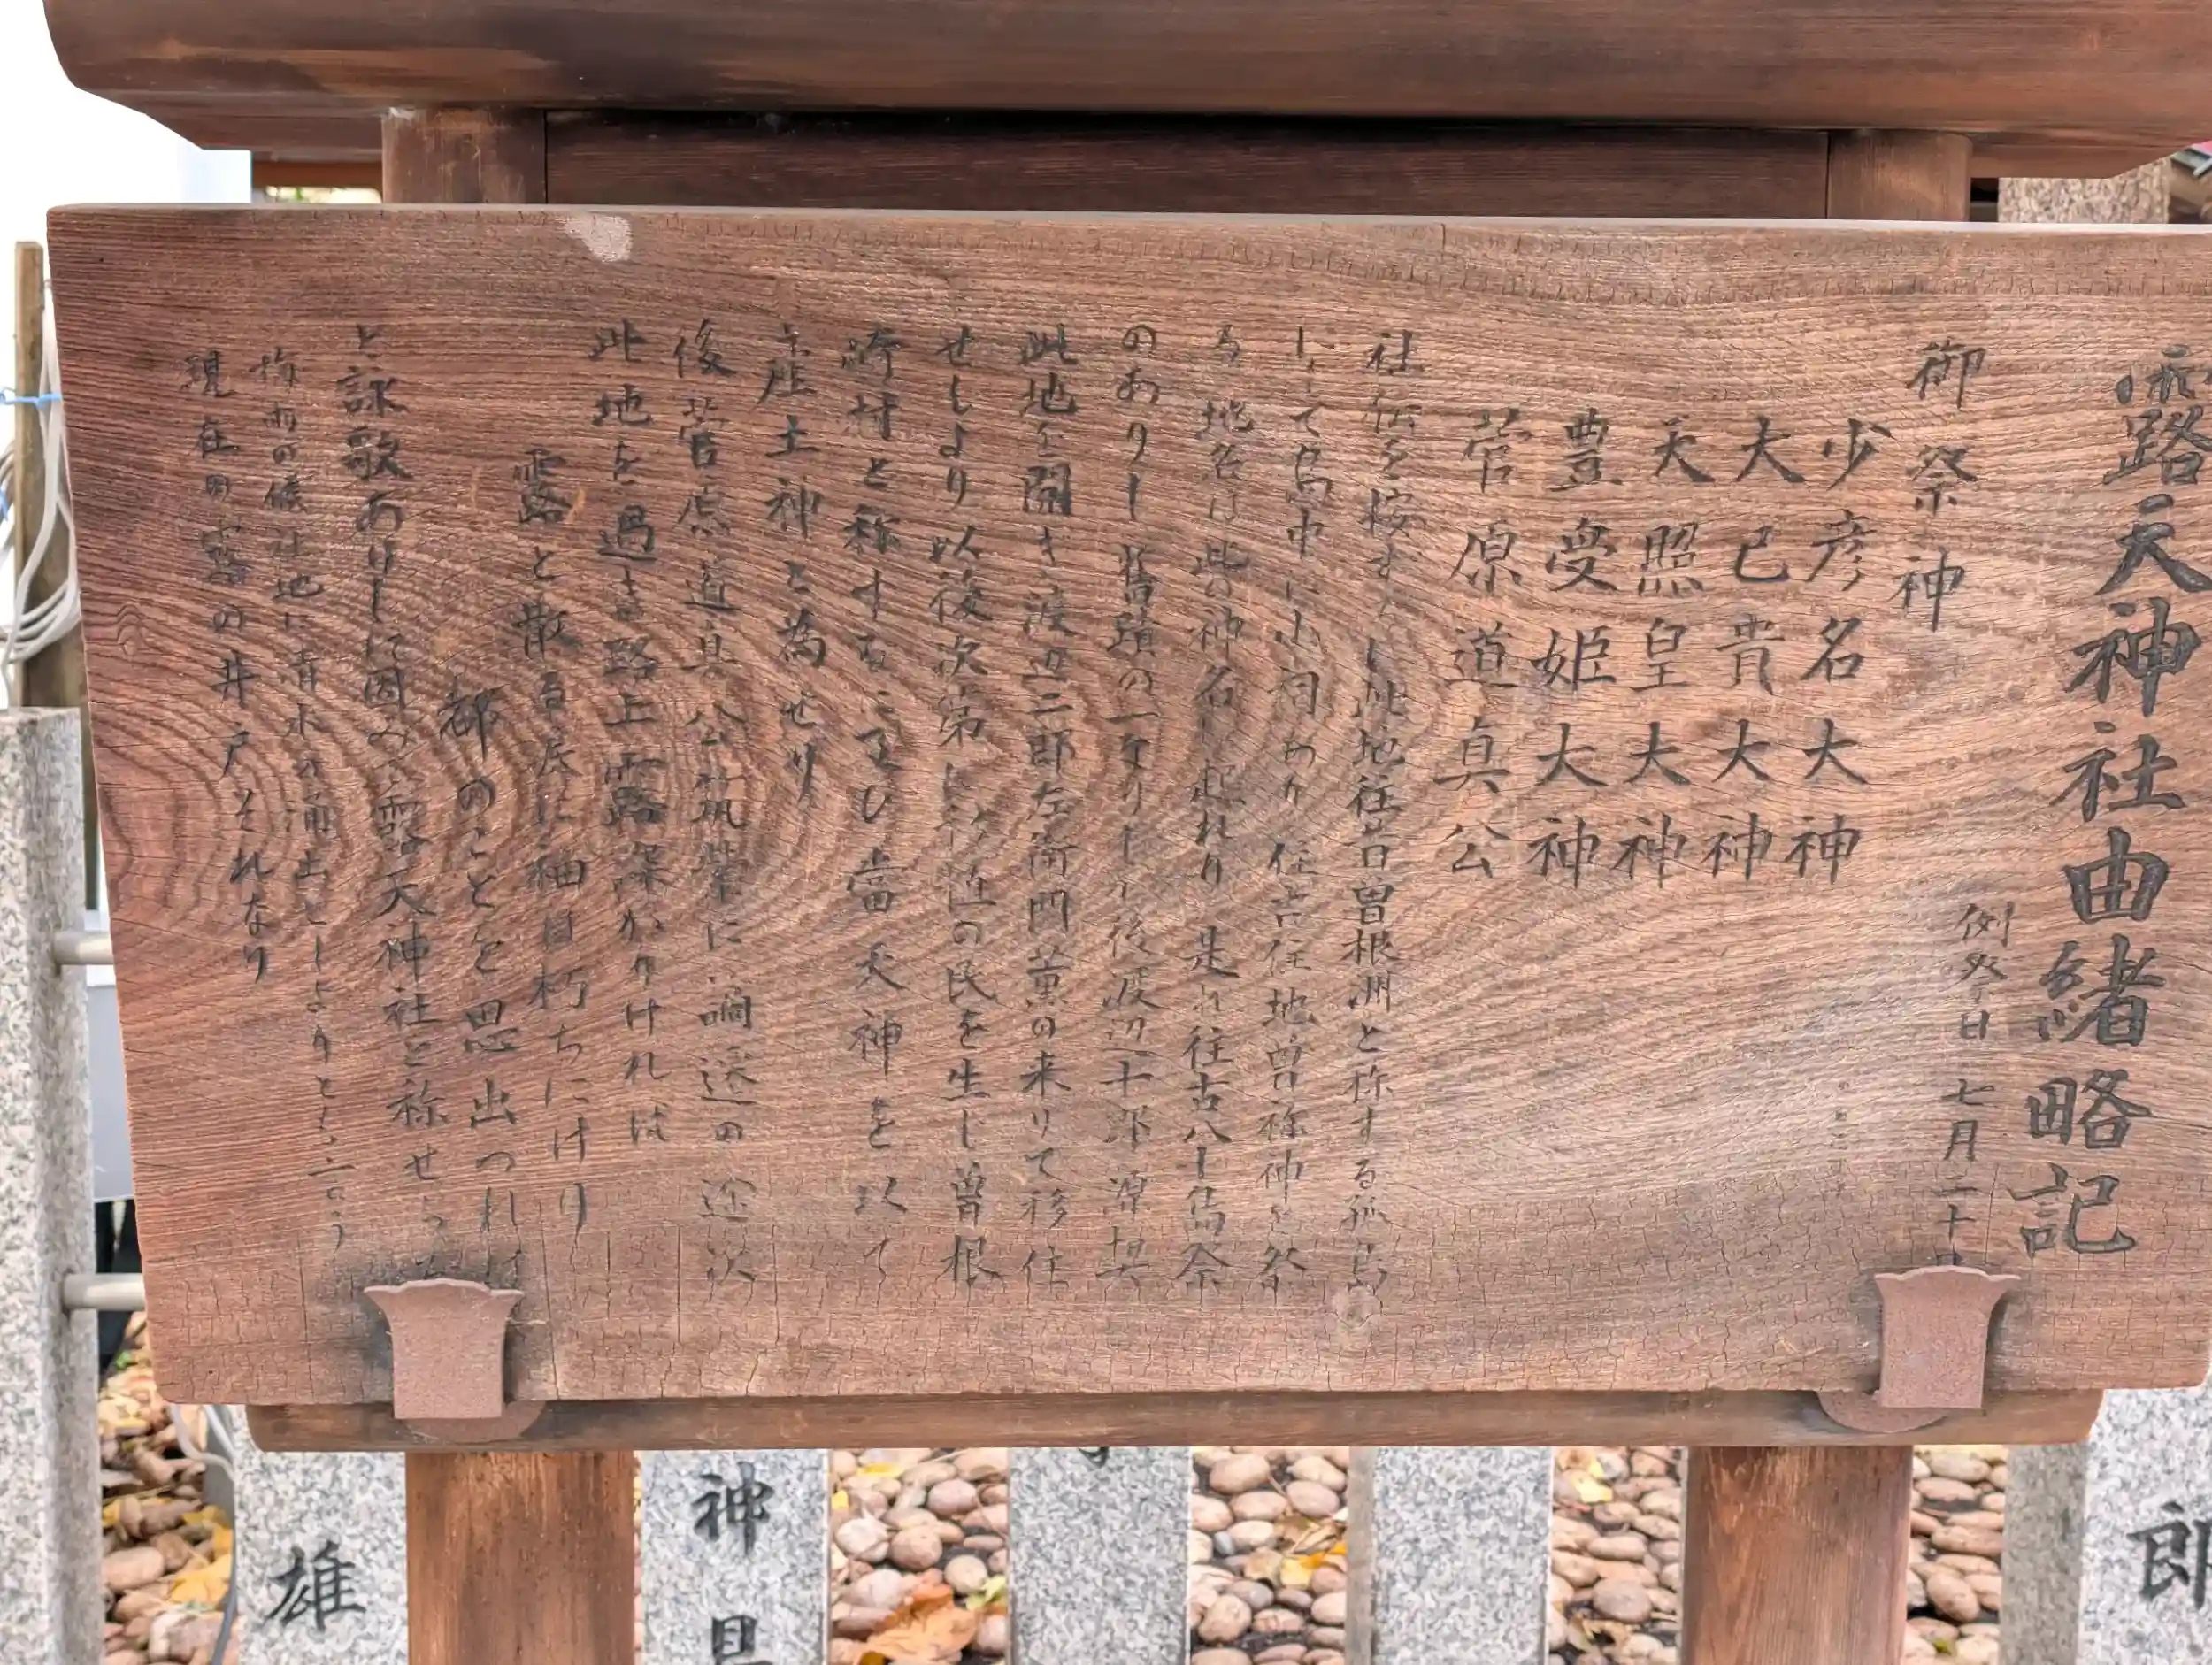 露天神社由緒略記
御祭神
例祭日 七月二十日
少彦名大神
大己貴大神
天照皇大神
豊受姫大神
菅原道真公
社伝を按ずるに此地往昔曽根洲と称する孤島
にして島中に小祠あり住吉住地曽祢神を祭
る地名は此の神名に起れり是れ往古八十島祭
のありし旧蹟の一なりしが後渡辺十郎源契
此地を開き渡辺二郎左衛門薫の来りて移住
せしより以後次第に付近の民を生じ曽根
崎村と称するに至ひ當天神を以て
産土神と為せり
後菅原道真公筑紫に謫送の途次
此地を過ぎ路上露深かりければ
露と散る涙に袖は朽ちにけり
都のことを思出つれば
と詠歌ありしに因み露天神社と称せら
梅雨の候社地に清水の涌出せしよりともいう
現在の露の井戸それなり
雄
神
郎